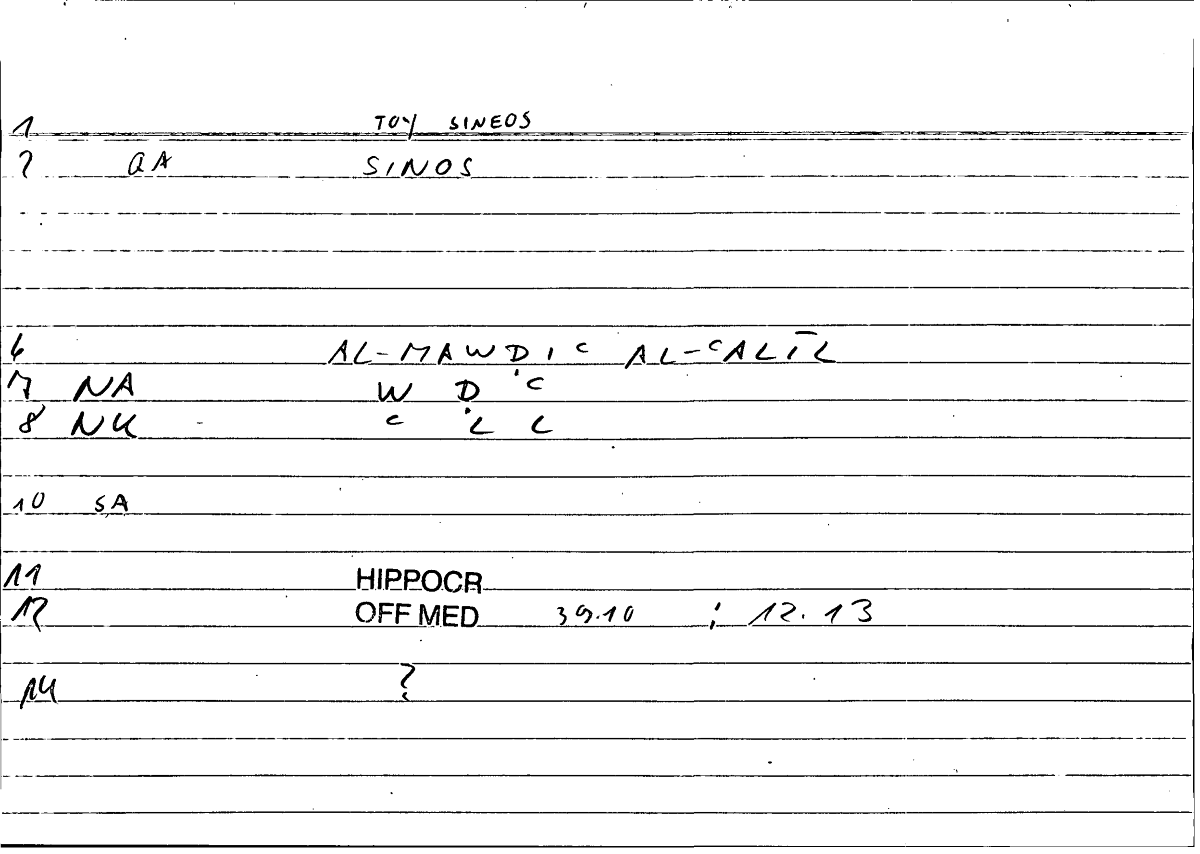 1 TOY SINEOS
2 QA SINOS
6 AL-MAWDIC AL-CALĪL
7 NA W D C
8 NU C L L
10 SA
11 HIPPOCR
12 OFF MED 39.10 ; 12.13
14 ?